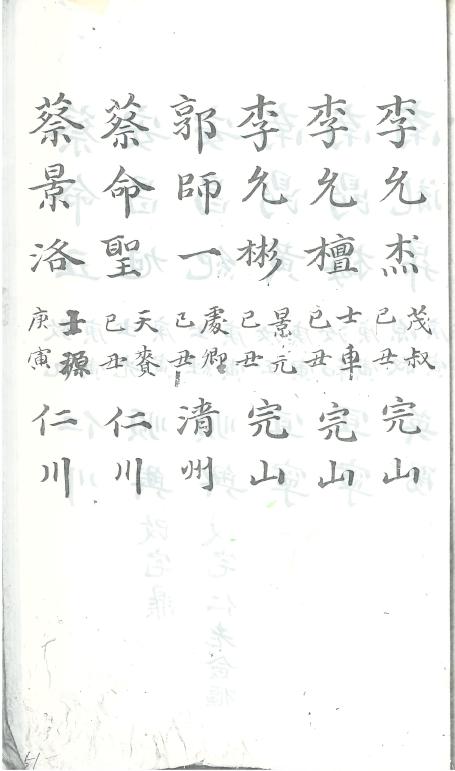 李允杰 茂叔 己丑 完山
李允檀 士車 己丑 完山
李允彬 景元 己丑 完山
郭師一 慶卿 己丑 清州
蔡命聖 天賚 己丑 仁川
蔡景洛 士源 庚寅 仁川
51